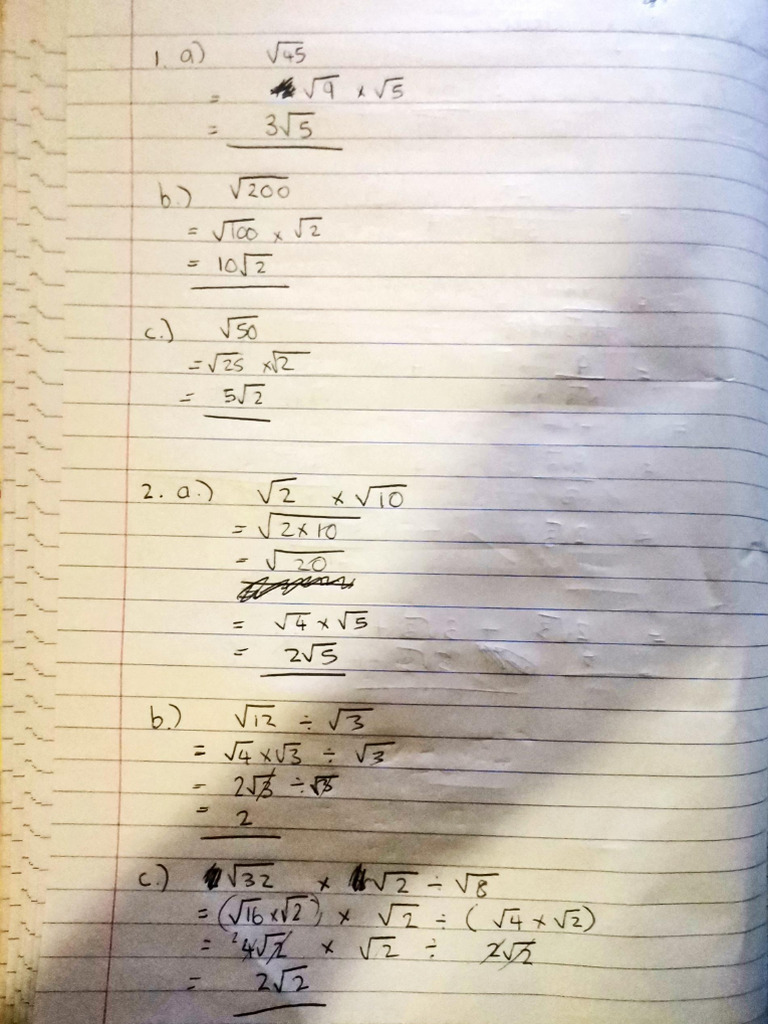 1. a) √45
= √9 × √5
= 3√5
b.) √200
= √100 × √2
= 10√2
c.) √50
= √25 × √2
= 5√2
2. a.) √2 × √10
= √2×10
= √20
= √4 × √5
= 2√5
b.) √12 ÷ √3
= √4 × √3 ÷ √3
= 2√3 ÷ √3
= 2
c.) √32 × √2 ÷ √8
= (√16 × √2) × √2 ÷ (√4 × √2)
= ²4√2 × √2 ÷ 2√2
= 2√2